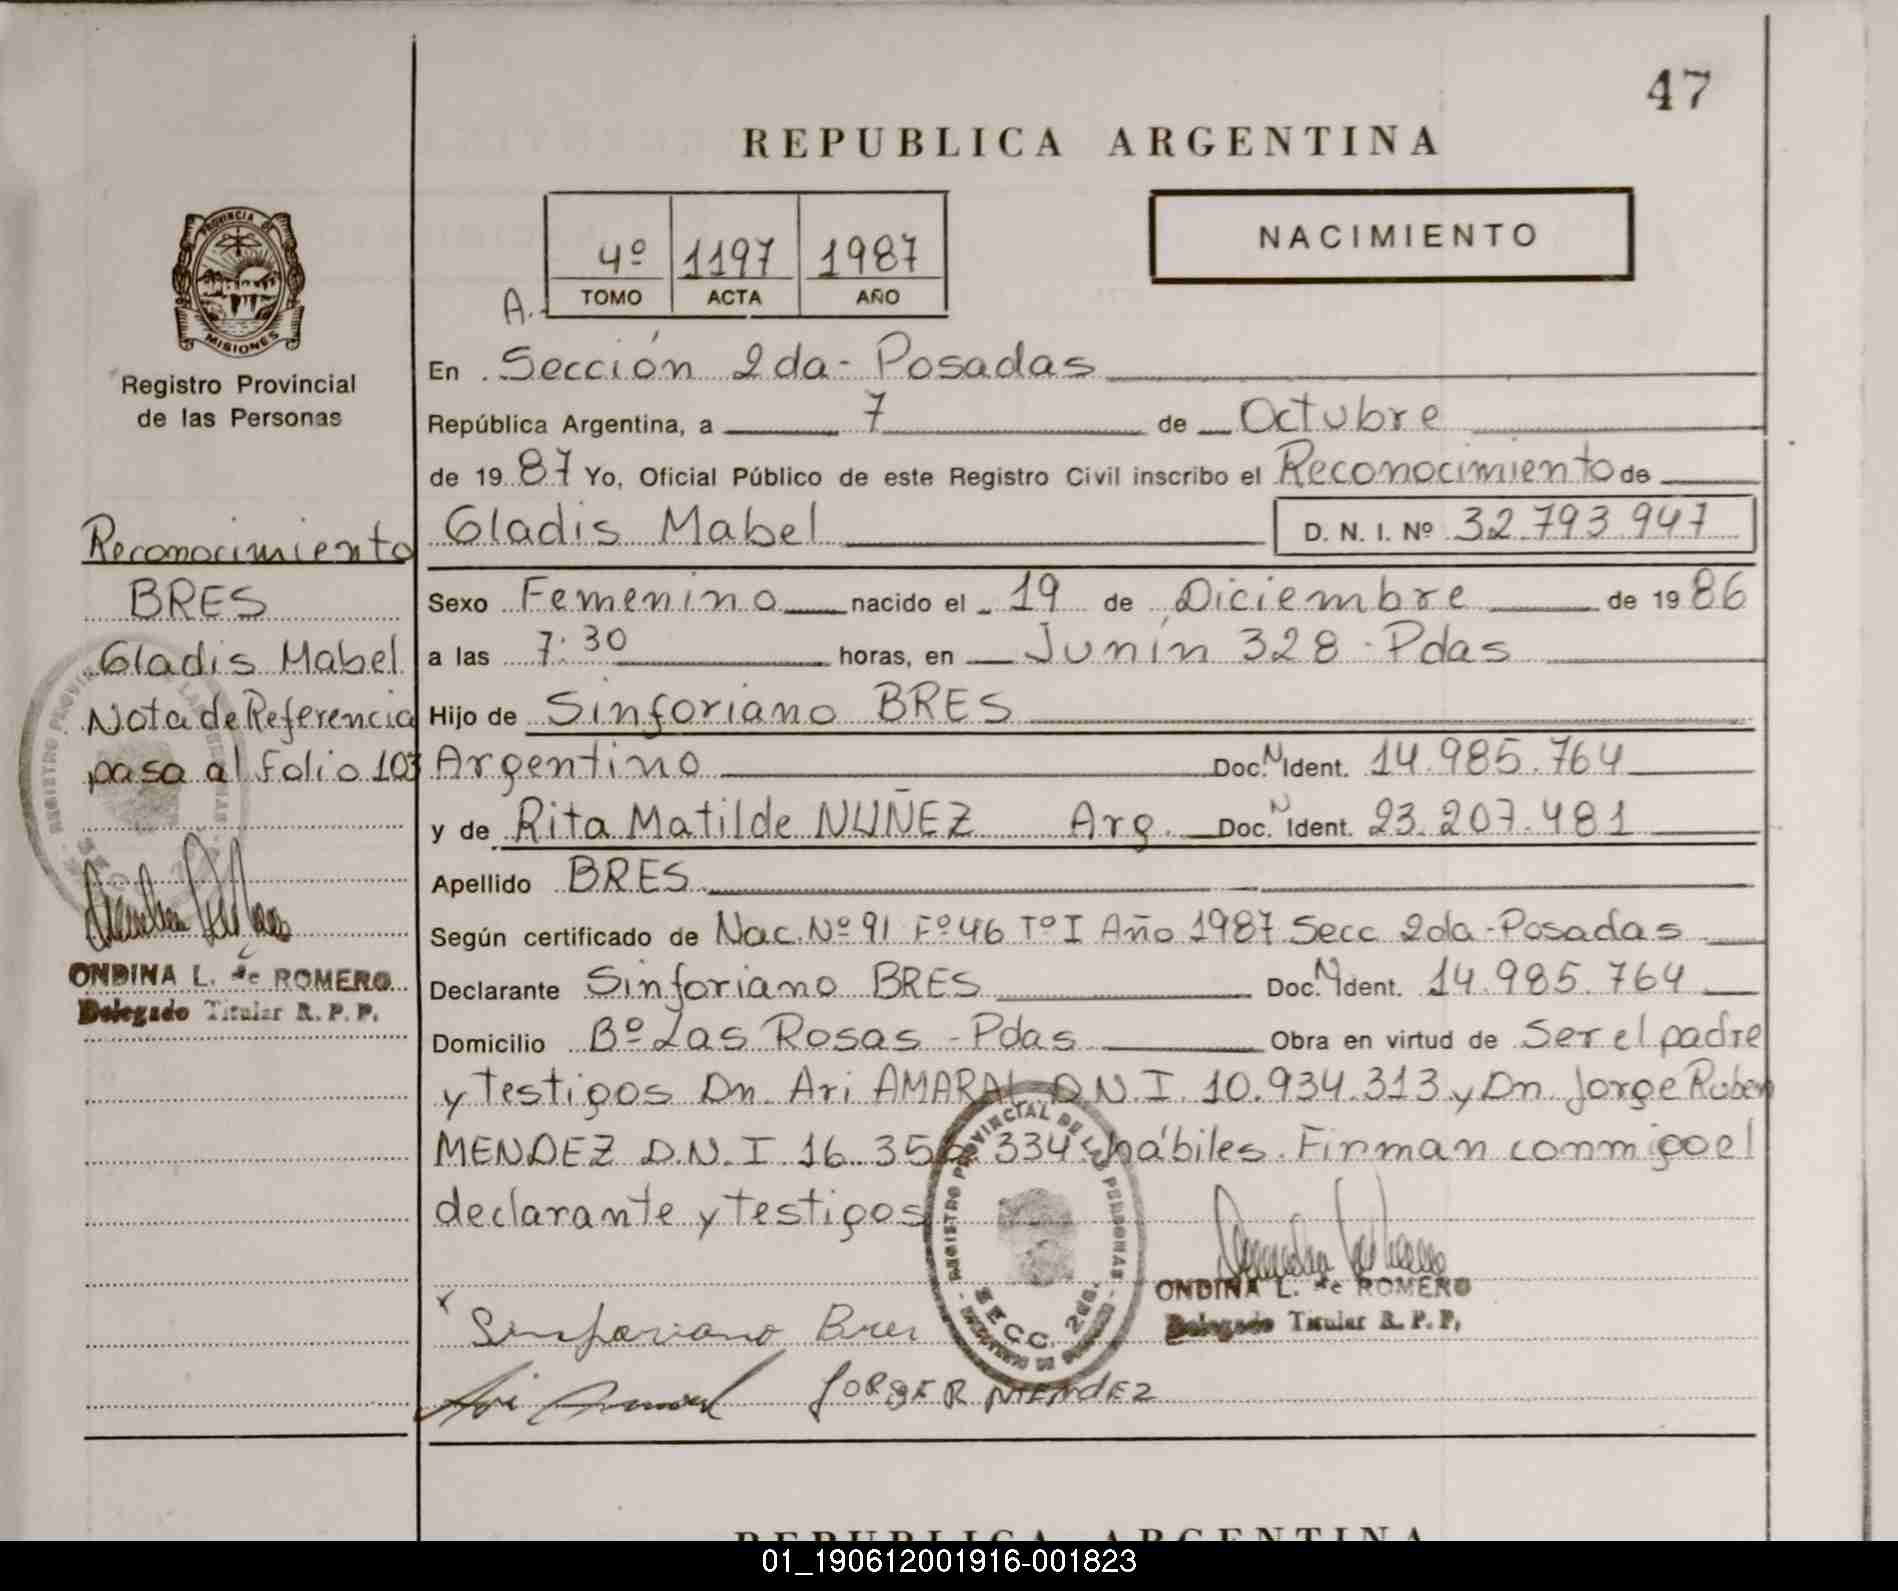 47
REPUBLICA ARGENTINA
4º 1197 1987
A. TOMO ACTA AÑO
NACIMIENTO
PROVINCIA DE
MISIONES
Registro Provincial
de las Personas
Reconocimiento
BRES
Gladis Mabel
Nota de Referencia
pasa al Folio 103
ONDINA L. de ROMERO
Delegado Titular R. P. P.
En Sección 2da - Posadas
República Argentina, a 7 de Octubre
de 19 87 Yo, Oficial Público de este Registro Civil inscribo el Reconocimiento de
Gladis Mabel D. N. I. Nº 32.793.947
Sexo Femenino nacido el 19 de Diciembre de 19 86
a las 7:30 horas, en Junín 328 - Pdas
Hijo de Sinforiano BRES
Argentino Doc. N Ident. 14.985.764
y de Rita Matilde NUÑEZ Arg. Doc. N Ident. 23.207.481
Apellido BRES
Según certificado de Nac. Nº 91 Fº 46 Tº I Año 1987 Secc 2da - Posadas
Declarante Sinforiano BRES Doc. N Ident. 14.985.764
Domicilio Bº Las Rosas - Pdas Obra en virtud de Ser el padre
y testigos Dn. Ari AMARAL D.N.I. 10.934.313 y Dn. Jorge Ruben
MENDEZ D.N.I. 16.35 334 hábiles. Firman conmigo el
declarante y testigos
REGISTRO PROVINCIAL DE LAS PERSONAS
SECC. 2da.
ONDINA L. de ROMERO
Delegado Titular R. P. P.
x Sinforiano Bres
Ari Amaral JORGE R MENDEZ
REPUBLICA ARGENTINA
01_190612001916-001823